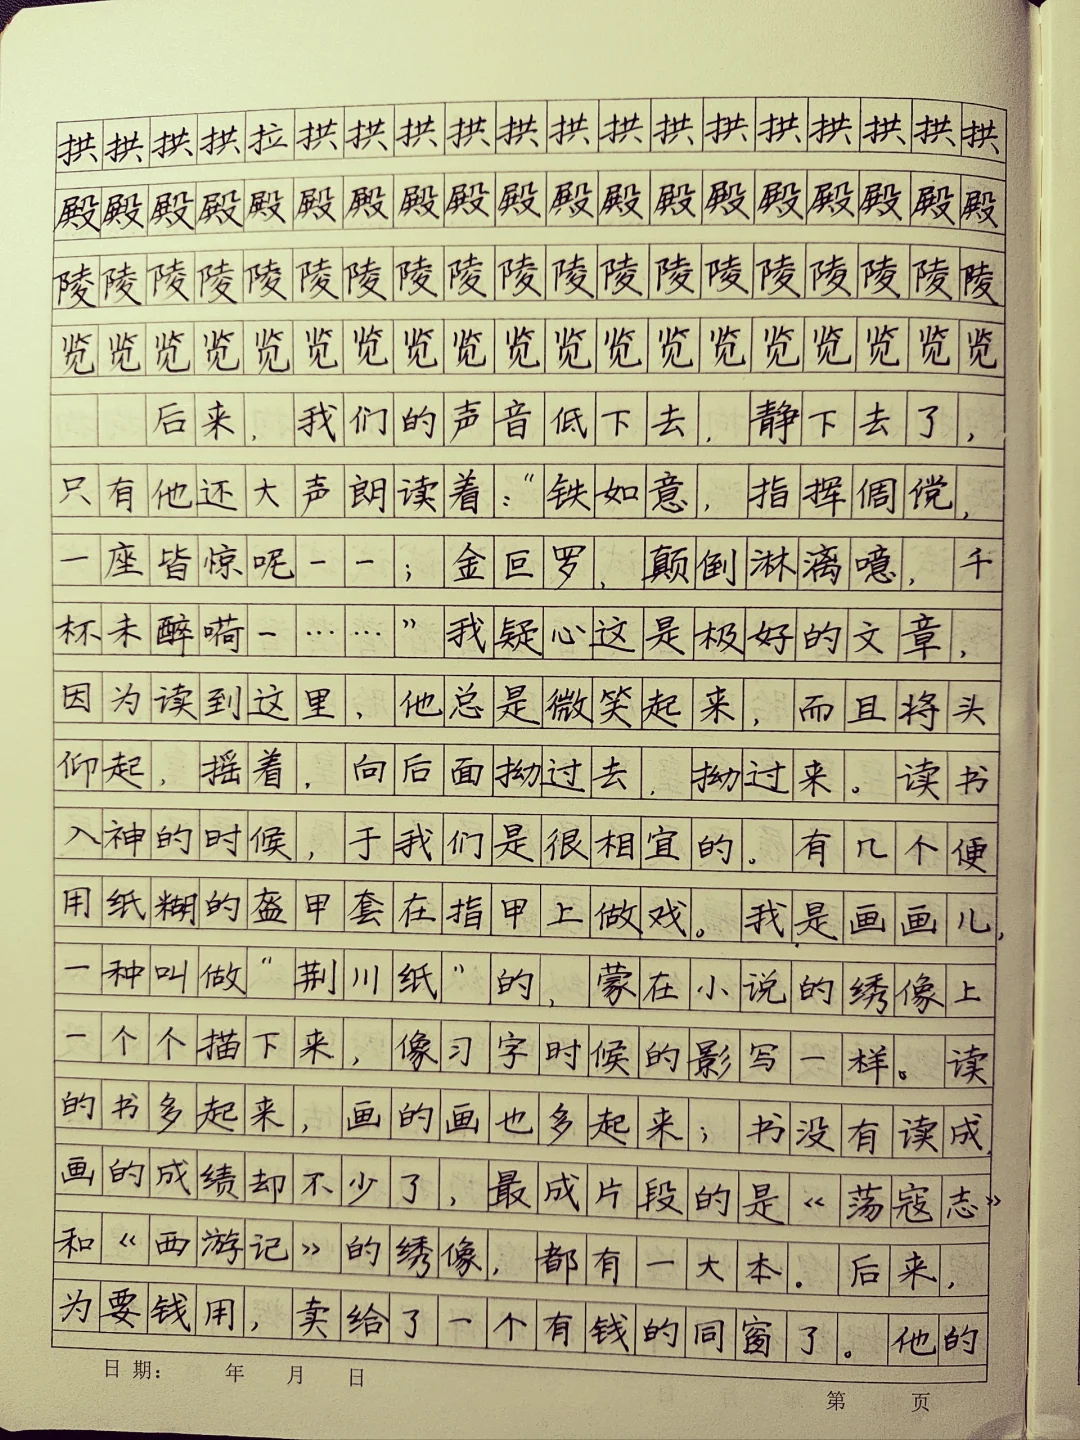 拱拱拱拱拉拱拱拱拱拱拱拱拱拱拱拱拱拱拱
殿殿殿殿殿殿殿殿殿殿殿殿殿殿殿殿殿殿殿
陵陵陵陵陵陵陵陵陵陵陵陵陵陵陵陵陵陵陵
览览览览览览览览览览览览览览览览览览览
后来，我们的声音低下去，静下去了，
只有他还大声朗读着：“铁如意，指挥倜傥，
一座皆惊呢一一；金叵罗，颠倒淋漓噫，千
杯未醉嗬一……”我疑心这是极好的文章，
因为读到这里，他总是微笑起来，而且将头
仰起，摇着，向后面拗过去，拗过来。读书
入神的时候，于我们是很相宜的。有几个便
用纸糊的盔甲套在指甲上做戏。我是画画儿，
一种叫做“荆川纸”的，蒙在小说的绣像上
一个个描下来，像习字时候的影写一样。读
的书多起来，画的画也多起来；书没有读成，
画的成绩却不少了，最成片段的是《荡寇志》
和《西游记》的绣像，都有一大本。后来，
为要钱用，卖给了一个有钱的同窗了。他的
日期： 年 月 日
第 页